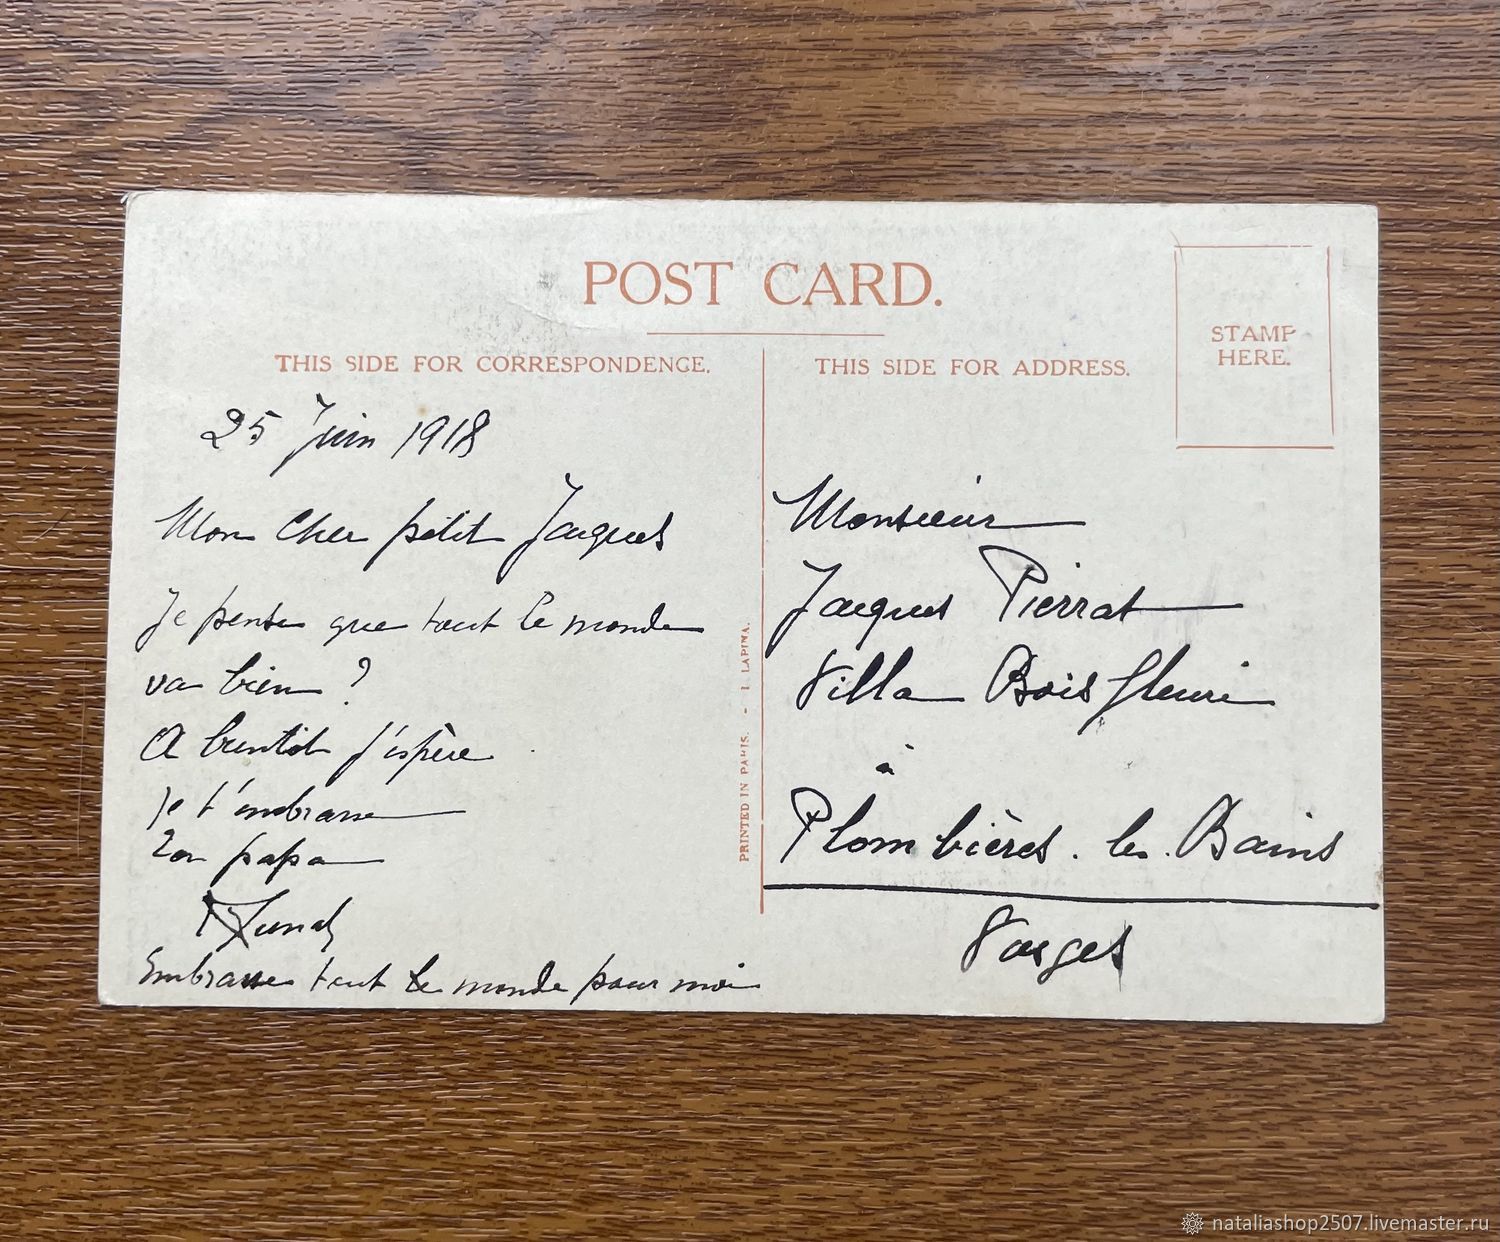 POST CARD.
STAMP
HERE.
THIS SIDE FOR CORRESPONDENCE.
THIS SIDE FOR ADDRESS.
25 Juin 1918
Mon cher petit Jacques
Je pense que tout le monde
va bien ?
A bientôt j'espère
je t'embrasse
Ton papa
Embrasse tout le monde pour moi
PRINTED IN PARIS. - I. LAPINA.
Monsieur
Jacques Pierrat
Villa Bois fleuri
à
Plombières. les. Bains
Vosges
nataliashop2507.livemaster.ru